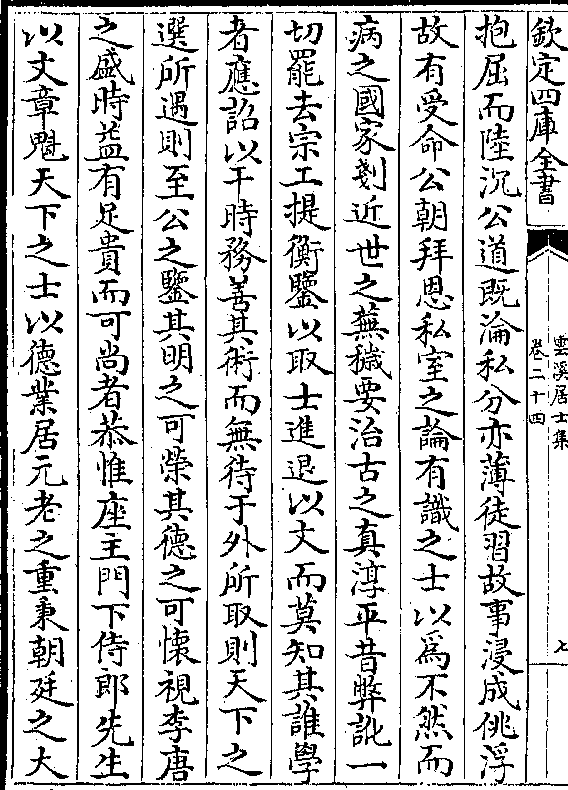 欽定四庫全書
雲溪居士集
卷二十四
七
抱屈而陸沉公道既淪私分亦薄徒習故事浸成佻浮
故有受命公朝拜恩私室之論有識之士以為不然而
病之國家剗近世之蕪穢要治古之真淳平昔弊訛一
切罷去宗工提衡鑒以取士進退以文而莫知其誰學
者應詔以干時務善其術而無待于外所取則天下之
選所遇則至公之鑒其明之可榮其德之可懷視李唐
之盛時葢有足貴而可尚者恭惟座主門下侍郎先生
以文章魁天下之士以德業居元老之重秉朝廷之大